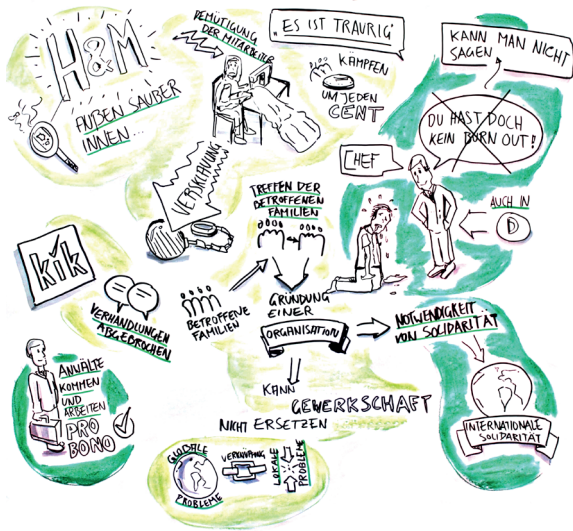 H&M
AUßEN SAUBER
INNEN...
DEMÜTIGUNG
DER MITARBEITER
„ES IST TRAURIG"
KÄMPFEN
UM JEDEN
CENT
KANN MAN NICHT
SAGEN
DU HAST DOCH
KEIN BURN OUT!
CHEF
AUCH IN
D
VERSKLAVUNG
TREFFEN DER
BETROFFENEN
FAMILIEN
kik
VERHANDLUNGEN
ABGEBROCHEN
BETROFFENE
FAMILIEN
GRÜNDUNG
EINER
ORGANISATION
NOTWENDIGKEIT
VON SOLIDARITÄT
INTERNATIONALE
SOLIDARITÄT
ANWÄLTE
KOMMEN
UND
ARBEITEN
PRO
BONO
KANN
GEWERKSCHAFT
NICHT ERSETZEN
GLOBALE
PROBLEME
VERKNÜPFUNG
LOKALE
PROBLEME